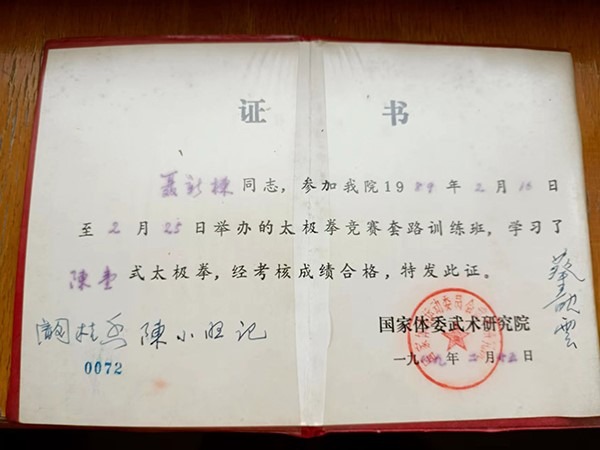 证 书
同志，参加我院1989年2月16日
至2月25日举办的太极拳竞赛套路训练班，学习了
陳 式太极拳，经考核成绩合格，特发此证。
阚桂香 陳小旺
蔡龙雲
0072
国家体委武术研究院
一九八九年二月廿五日